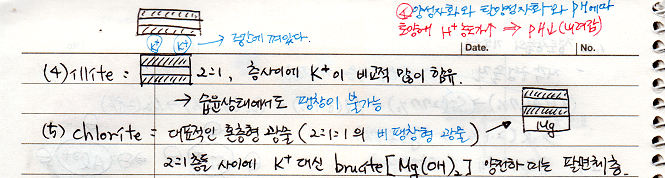 ④ 양성자화와 탈양성자화와 pH에따
토양에 H⁺농도가↑ ⇒ pH↓(내려감)
K⁺ K⁺ → 중간에 껴있다.
Date. No.
(4) illite = 2:1, 층사이에 K⁺이 비교적 많이 함유.
→ 습윤상태에서도 팽창이 불가능
(5) chlorite = 대표적인 혼층형 광물 (2:1:1의 비팽창형 광물)
Mg
2:1층들 사이에 K⁺ 대신 brucite [Mg(OH)₂] 양전하 띠는 팔면체층.